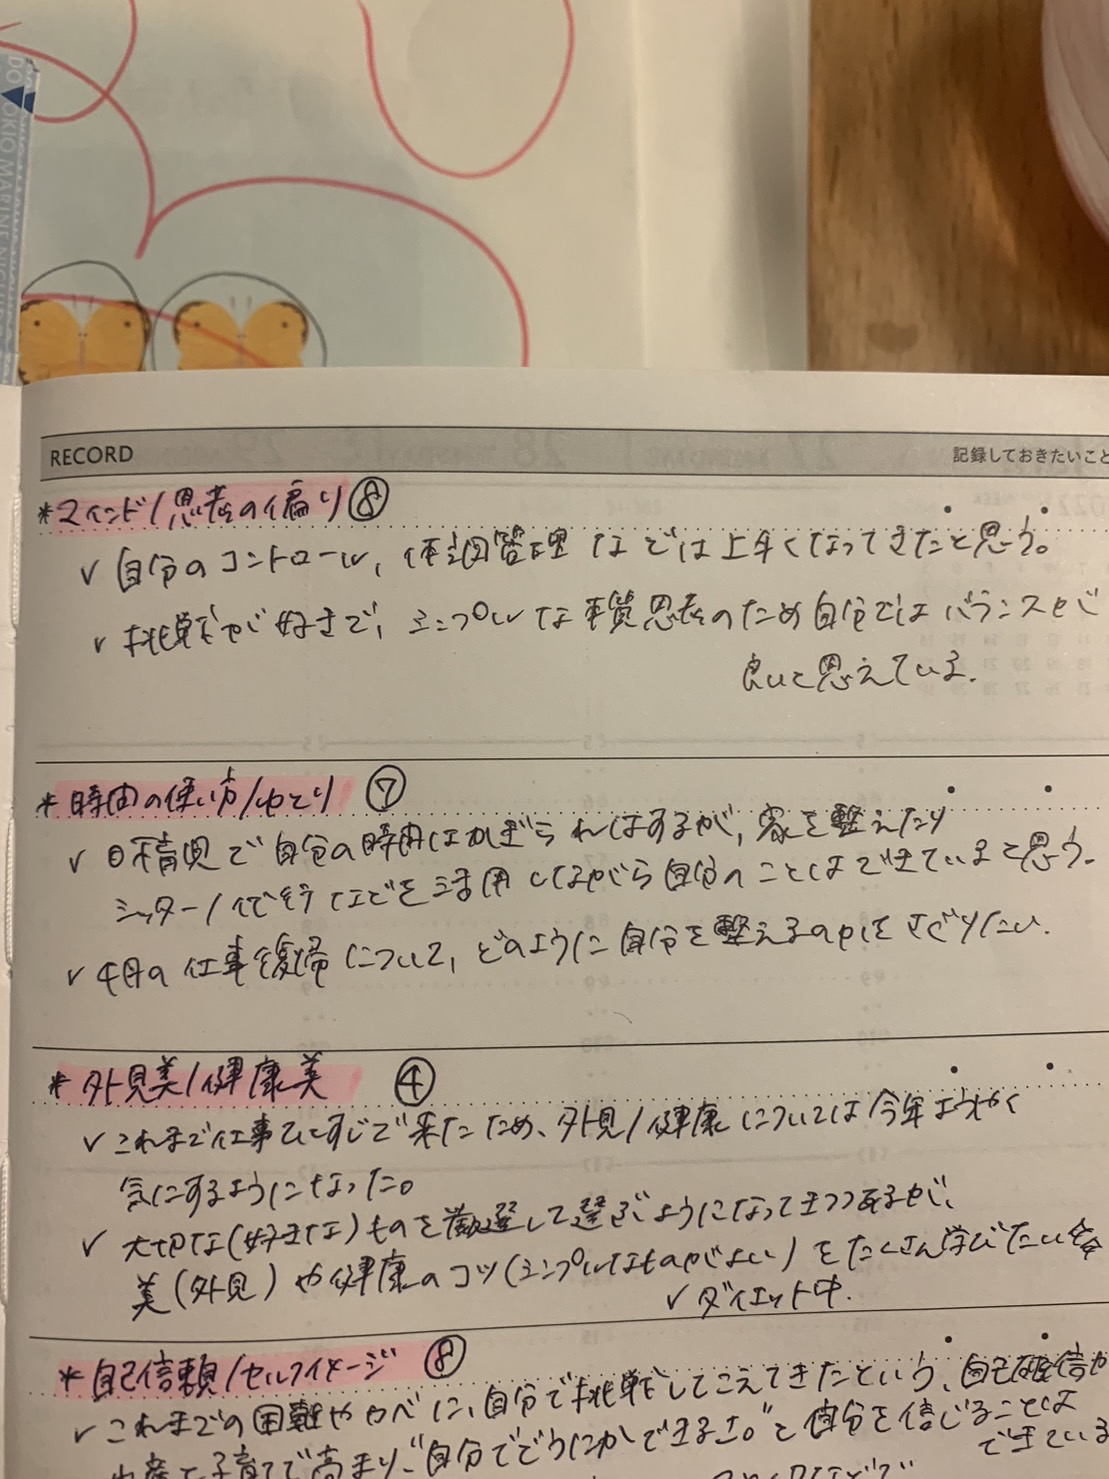 DO TOKIO MARINE NICHIDO
RECORD 記録しておきたいこと
*マインド/思考の偏り ⑧
✓ 自分のコントロール, 体調管理などは上手くなってきたと思う。
✓ 挑戦が好きで, シンプルな事質思考のため自分ではバランスが
良いと思えている.
*時間の使い方/ゆとり ⑦
✓ 日不育児で自分の時間はかぎられはするが, 家を整えたり
シッター/代行などを活用しながら自分のことはできていると思う.
✓ 4月の仕事復帰について, どのように自分を整えるのかをさぐりたい.
*外見美/健康美 ④
✓ これまで仕事ひとすじで来たため、外見/健康については今年ようやく
気にするようになった。
✓ 大切な(好きな)ものを厳選して選ぶようになってきつつあるが、
美(外見)や健康のコツ(シンプルなものがよい)をたくさん学びたい
✓ダイエット中.
*自己信頼/セルフイメージ ⑧
✓ これまでの困難やカベに、自分で挑戦してこえてきたという、自己確信が
出産と子育てで高まり、"自分でどうにかできるさ。"と自分を信じることは
できている